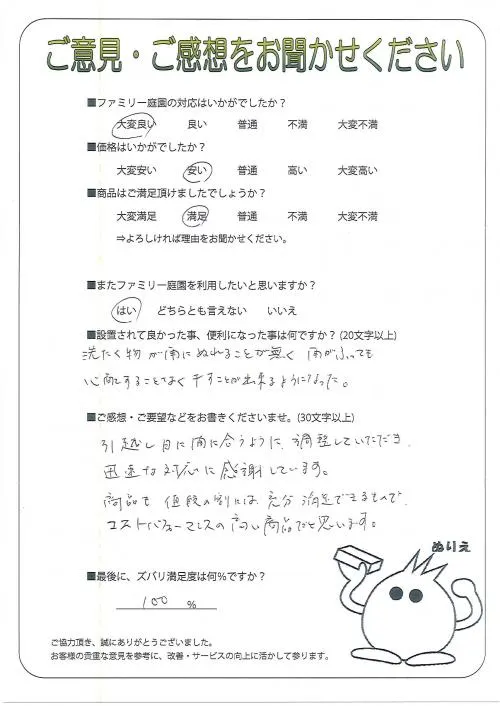 ご意見・ご感想をお聞かせください
■ファミリー庭園の対応はいかがでしたか？
大変良い 良い 普通 不満 大変不満
■価格はいかがでしたか？
大変安い 安い 普通 高い 大変高い
■商品はご満足頂けましたでしょうか？
大変満足 満足 普通 不満 大変不満
⇒よろしければ理由をお聞かせください。
■またファミリー庭園を利用したいと思いますか？
はい どちらとも言えない いいえ
■設置されて良かった事、便利になった事は何ですか？(20文字以上)
洗たく物が雨にぬれることが無く 雨がふっても
心配することなく干すことが出来るようになった。
■ご感想・ご要望などをお書きくださいませ。(30文字以上)
引越し日に間に合うように、調整していただき、
迅速な対応に感謝しています。
商品も値段の割には充分満足できるもので、
コストパフォーマンスの高い商品だと思います。
ぬりえ
■最後に、ズバリ満足度は何％ですか？
100 ％
ご協力頂き、誠にありがとうございました。
お客様の貴重な意見を参考に、改善・サービスの向上に活かして参ります。